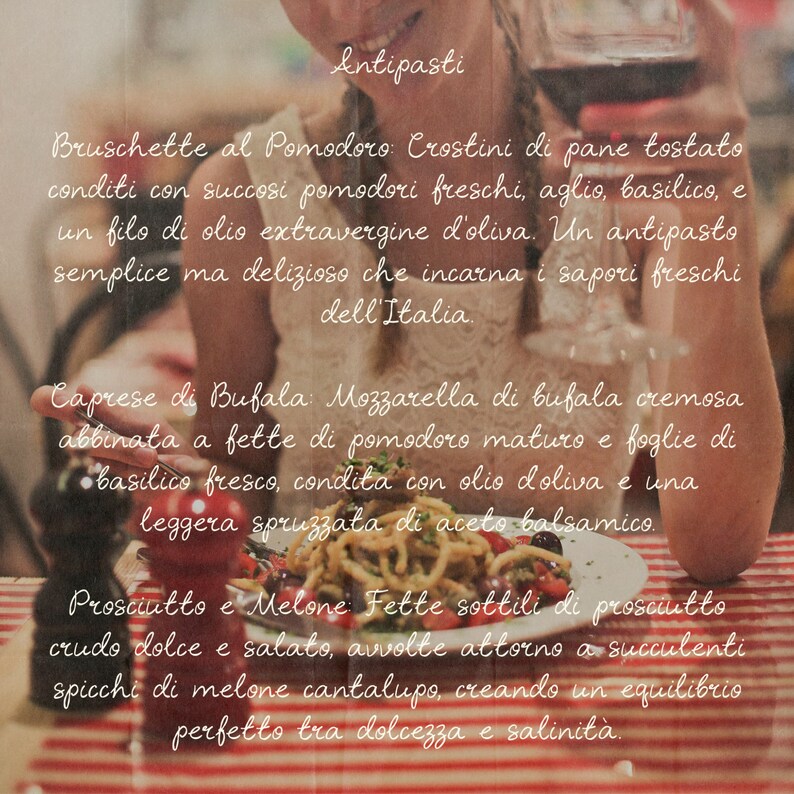 Antipasti
Bruschette al Pomodoro: Crostini di pane tostato
conditi con succosi pomodori freschi, aglio, basilico, e
un filo di olio extravergine d'oliva. Un antipasto
semplice ma delizioso che incarna i sapori freschi
dell'Italia.
Caprese di Bufala: Mozzarella di bufala cremosa
abbinata a fette di pomodoro maturo e foglie di
basilico fresco, condita con olio d'oliva e una
leggera spruzzata di aceto balsamico.
Prosciutto e Melone: Fette sottili di prosciutto
crudo dolce e salato, avvolte attorno a succulenti
spicchi di melone cantalupo, creando un equilibrio
perfetto tra dolcezza e salinità.